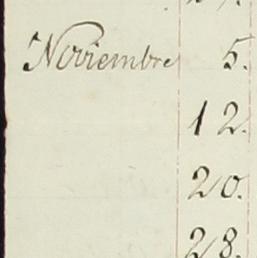 Noviembre 5.
12.
20.
28.